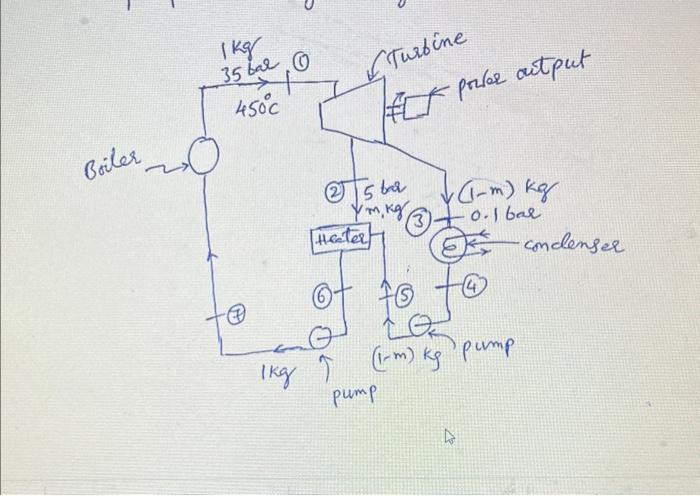 1 kg
35 bar ①
450°C
Turbine
power output
Boiler
② 5 bar
m, kg
(1-m) kg
③ 0.1 bar
Heater
condenser
④
⑥
⑤
⑦
1 kg
pump
(1-m) kg
pump